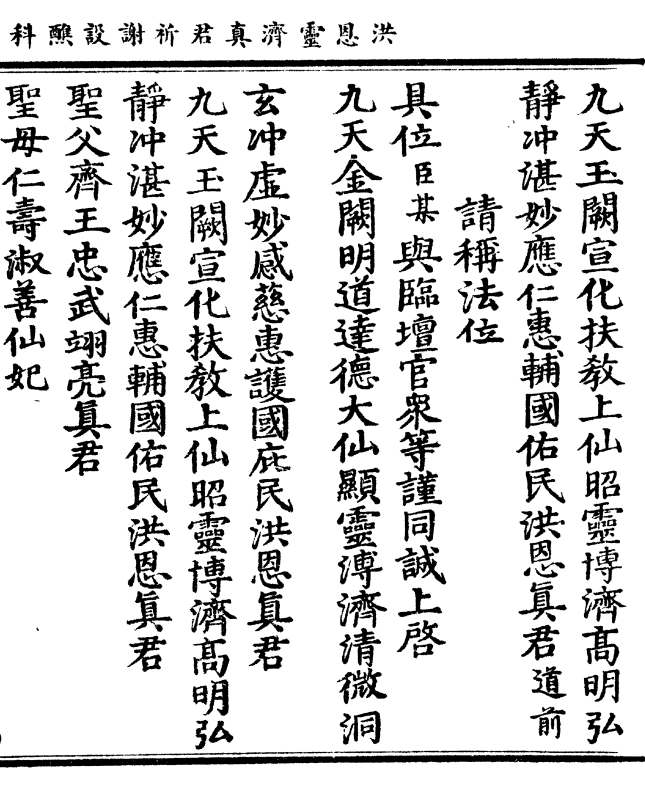 洪恩靈濟真君祈謝設醮科
九天玉闕宣化扶教上仙昭靈博濟高明弘
靜冲湛妙應仁惠輔國佑民洪恩真君道前
請稱法位
具位臣某與臨壇官眾等謹同誠上啓
九天金闕明道達德大仙顯靈溥濟清微洞
玄冲虛妙感慈惠護國庇民洪恩真君
九天玉闕宣化扶教上仙昭靈博濟高明弘
靜冲湛妙應仁惠輔國佑民洪恩真君
聖父齊王忠武翊亮真君
聖母仁壽淑善仙妃